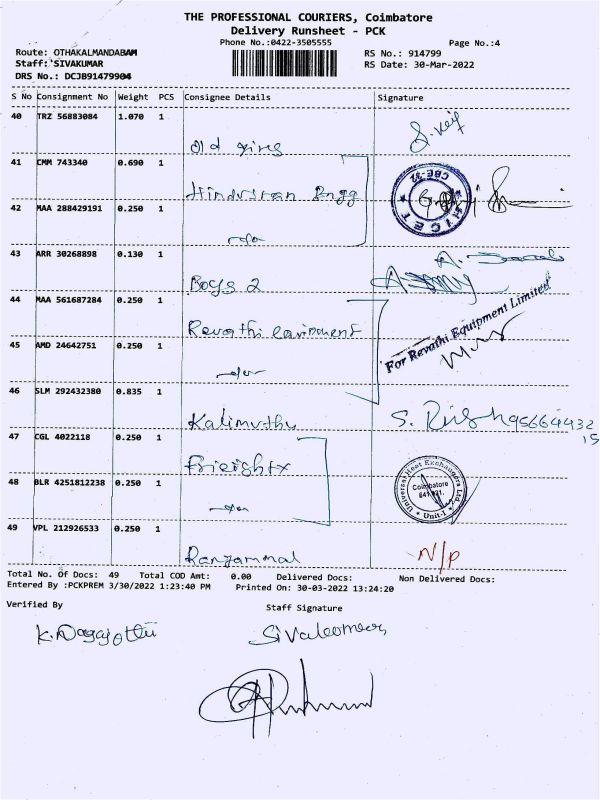 THE PROFESSIONAL COURIERS, Coimbatore
Delivery Runsheet - PCK
Phone No.:0422-3505555 Page No.:4
Route: OTHAKALMANDABAM RS No.: 914799
Staff: SIVAKUMAR RS Date: 30-Mar-2022
DRS No.: DCJB91479904
S No Consignment No Weight PCS Consignee Details Signature
40 TRZ 56883084 1.070 1
41 CMM 743340 0.690 1
Hindustan Engg
42 MAA 288429191 0.250 1
43 ARR 30268898 0.130 1
Boys 2
44 MAA 561687284 0.250 1
Revathi equipment
For Revathi Equipment Limited
45 AMD 24642751 0.250 1
46 SLM 292432380 0.835 1
Kalimuthu
47 CGL 4022118 0.250 1
Frieightx
Universal Heat Exchangers Ltd.
Coimbatore
641 021.
Unit-1
48 BLR 4251812238 0.250 1
49 VPL 212926533 0.250 1
Rangammal N/P
Total No. Of Docs: 49 Total COD Amt: 0.00 Delivered Docs: Non Delivered Docs:
Entered By :PCKPREM 3/30/2022 1:23:40 PM Printed On: 30-03-2022 13:24:20
Verified By Staff Signature